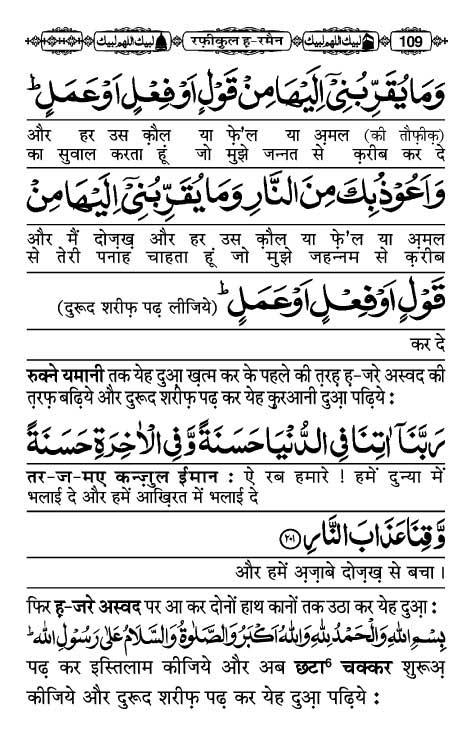 لبيك اللهم لبيك रफ़ीकुल ह-रमैन لبيك اللهم لبيك 109
وَمَا يُقَرِّبُنِيْٓ اِلَيْهَا مِنْ قَوْلٍ اَوْ فِعْلٍ اَوْ عَمَلٍ ؕ
और हर उस क़ौल या फ़े'ल या अ़मल (की तौफ़ीक़)
का सुवाल करता हूं जो मुझे जन्नत से क़रीब कर दे
وَاَعُوْذُ بِكَ مِنَ النَّارِ وَمَا يُقَرِّبُنِيْٓ اِلَيْهَا مِنْ
और मैं दोज़ख़ और हर उस क़ौल या फ़े'ल या अ़मल
से तेरी पनाह चाहता हूं जो मुझे जहन्नम से क़रीब
قَوْلٍ اَوْ فِعْلٍ اَوْ عَمَلٍ ؕ (दुरूद शरीफ़ पढ़ लीजिये)
कर दे
रुक्ने यमानी तक येह दुआ़ ख़त्म कर के पहले की त़रह़ ह़-जरे अस्वद की
त़रफ़ बढ़िये और दुरूद शरीफ़ पढ़ कर येह क़ुरआनी दुआ़ पढ़िये :
رَبَّنَآ اٰتِنَا فِي الدُّنْيَا حَسَنَةً وَّفِي الْاٰخِرَةِ حَسَنَةً
तर-ज-मए कन्ज़ुल ईमान : ऐ रब हमारे ! हमें दुन्या में
भलाई दे और हमें आख़िरत में भलाई दे
وَّقِنَا عَذَابَ النَّارِ ﴿۲۰۱﴾
और हमें अ़ज़ाबे दोज़ख़ से बचा ।
फिर ह़-जरे अस्वद पर आ कर दोनों हाथ कानों तक उठा कर येह दुआ़ :
بِسْمِ اللهِ وَالْحَمْدُ لِلّٰهِ وَاللهُ اَكْبَرُ وَالصَّلٰوةُ وَالسَّلَامُ عَلٰى رَسُوْلِ اللهِ ؕ
पढ़ कर इस्तिलाम कीजिये और अब छटा⁶ चक्कर शुरूअ़
कीजिये और दुरूद शरीफ़ पढ़ कर येह दुआ़ पढ़िये :